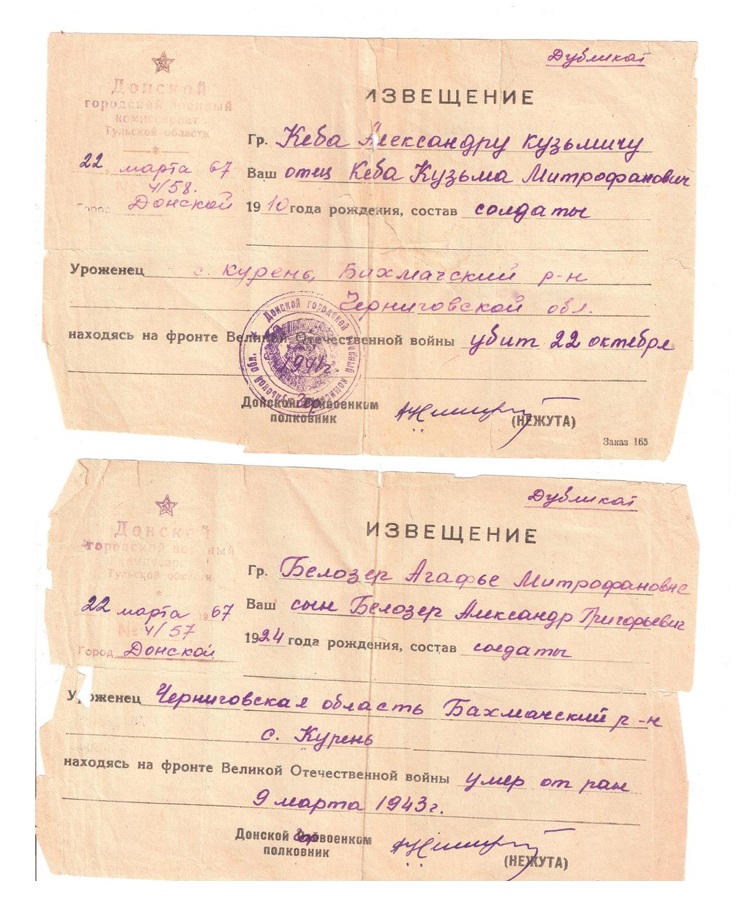 Дубликат
Донской
городской военный
комиссариат
Тульской области
ИЗВЕЩЕНИЕ
Гр. Кеба Александру Кузьмичу
22 марта 67
4/58.
Ваш отец Кеба Кузьма Митрофанович
Город Донской
1910 года рождения, состав солдаты
Уроженец с. Курень, Бахмачский р-н
Черниговской обл.
находясь на фронте Великой Отечественной войны убит 22 октября
Донской горвоенком
полковник
(НЕЖУТА)
Заказ 165
Дубликат
Донской
городской военный
Тульской области
ИЗВЕЩЕНИЕ
Гр. Белозер Агафье Митрофановне
22 марта 1967
№ 4/57
Ваш сын Белозер Александр Григорьевич
Город Донской
1924 года рождения, состав солдаты
Уроженец Черниговская область Бахмачский р-н
с. Курень
находясь на фронте Великой Отечественной войны умер от ран
9 марта 1943 г.
Донской горвоенком
полковник
(НЕЖУТА)